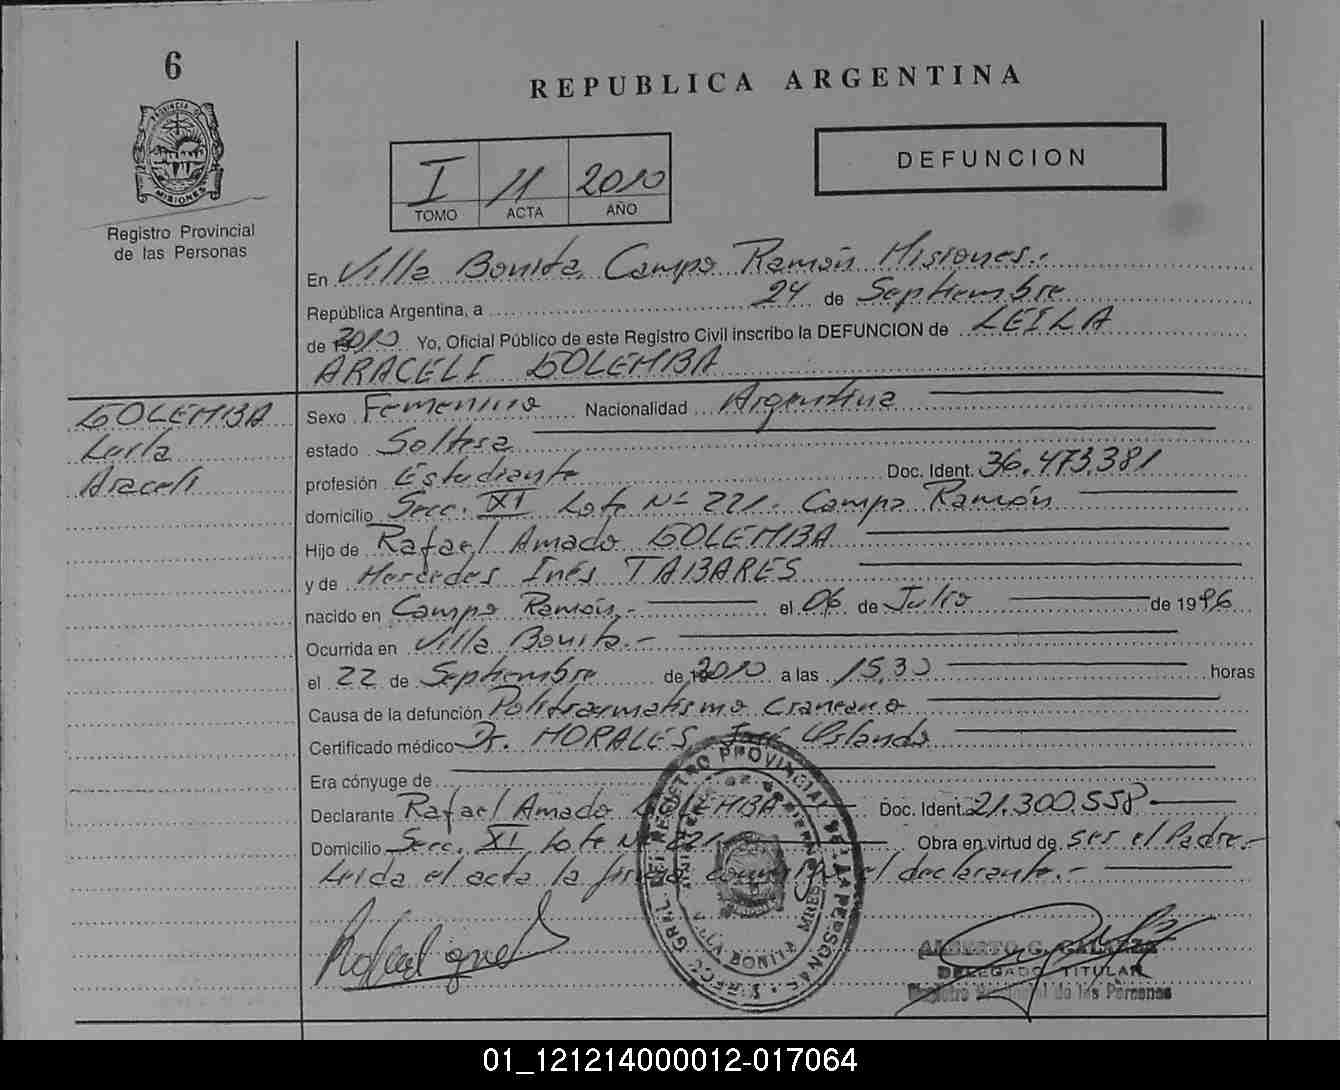 6
REPUBLICA ARGENTINA
PROVINCIA DE
MISIONES
Registro Provincial
de las Personas
I 11 2010
TOMO ACTA AÑO
DEFUNCION
En Villa Bonita, Campo Ramón Misiones.-
República Argentina, a 24 de Septiembre
de 2010 Yo, Oficial Público de este Registro Civil inscribo la DEFUNCION de LEILA
ARACELI GOLEMBA
GOLEMBA
Leila
Araceli
Sexo Femenino Nacionalidad Argentina
estado Soltera
profesión Estudiante Doc. Ident. 36.473.381
domicilio Secc. XI Lote Nº 221. Campo Ramón
Hijo de Rafael Amado GOLEMBA
y de Mercedes Inés TABARES
nacido en Campo Ramón.- el 06 de Julio de 1996
Ocurrida en Villa Bonita.-
el 22 de Septiembre de 2010 a las 15,30 horas
Causa de la defunción Politraumatismo Craneano
Certificado médico Dr. MORALES José
Era cónyuge de
Declarante Rafael Amado GOLEMBA Doc. Ident. 21.300.558
Domicilio Secc. XI Lote Nº 221 Obra en virtud de ser el Padre.-
Leida el acta la firma conmigo el declarante.-
REGISTRO PROVINCIAL DE LAS PERSONAS
VILLA BONITA
ALBERTO G.
DELEGADO TITULAR
Registro Provincial de las Personas
01_121214000012-017064